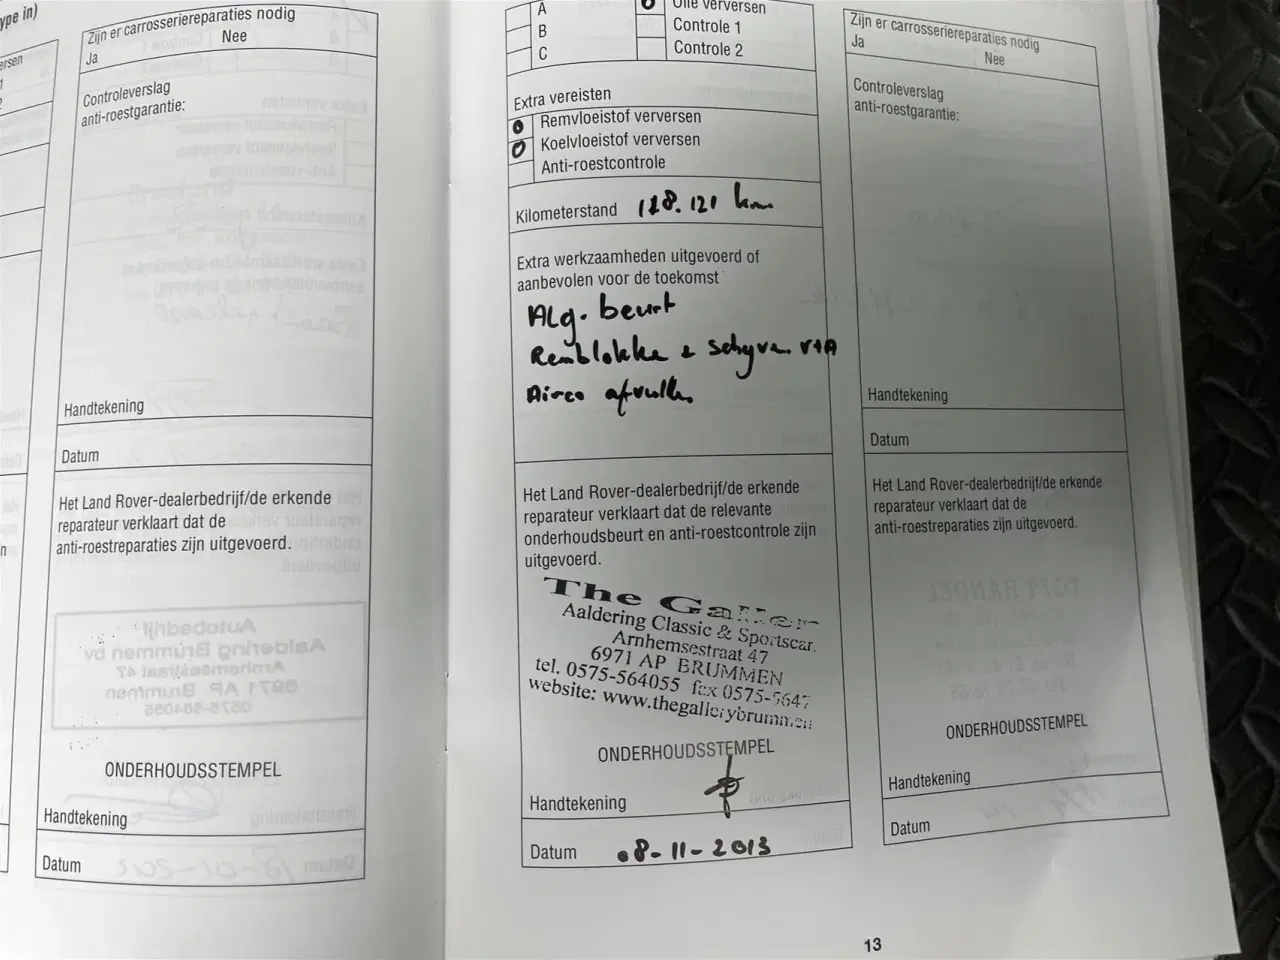 ype in)
ersen
Zijn er carrosseriereparaties nodig
Ja
Nee
Controleverslag
anti-roestgarantie:
Handtekening
Datum
Het Land Rover-dealerbedrijf/de erkende
reparateur verklaart dat de
anti-roestreparaties zijn uitgevoerd.
ONDERHOUDSSTEMPEL
Handtekening
Datum
A
B
C
Olie verversen
Controle 1
Controle 2
Extra vereisten
Remvloeistof verversen
Koelvloeistof verversen
Anti-roestcontrole
Kilometerstand 118.121 km
Extra werkzaamheden uitgevoerd of
aanbevolen voor de toekomst
Alg. beurt
Remblokke & schyven V+A
Airco afvullen
Het Land Rover-dealerbedrijf/de erkende
reparateur verklaart dat de relevante
onderhoudsbeurt en anti-roestcontrole zijn
uitgevoerd.
The Galler
Aaldering Classic & Sportscar.
Arnhemsestraat 47
6971 AP BRUMMEN
tel. 0575-564055 fax 0575-5647
website: www.thegallerybrummen
ONDERHOUDSSTEMPEL
Handtekening
Datum 08-11-2013
Zijn er carrosseriereparaties nodig
Ja
Nee
Controleverslag
anti-roestgarantie:
Handtekening
Datum
Het Land Rover-dealerbedrijf/de erkende
reparateur verklaart dat de
anti-roestreparaties zijn uitgevoerd.
ONDERHOUDSSTEMPEL
Handtekening
Datum
13